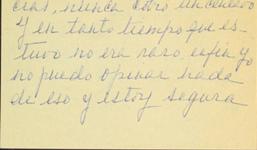 cias, nunca otro
y en tanto tiempo que es-
tuvo no era raro, y yo
no puedo opinar nada
de eso y estoy segura